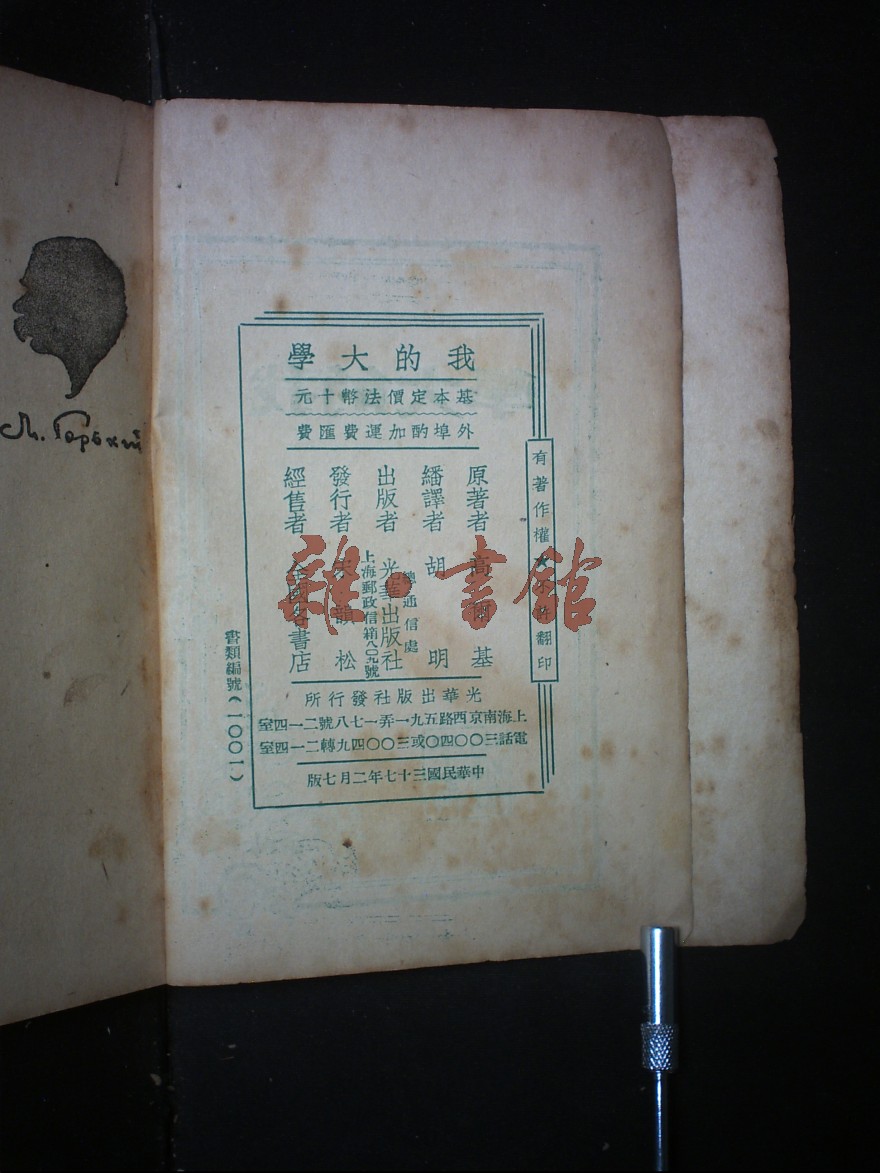 М. Горький
我的大學
基本定價法幣十元
外埠酌加運費匯費
有著作權★不許翻印
原著者 高爾基
繙譯者 胡明
出版者 光華出版社
總通信處
上海郵政信箱八〇九號
發行者 宋韻松
經售者 全國各書店
光華出版社發行所
上海南京西路五九一弄一七八號二一四室
電話三〇〇四〇或三〇〇四九轉二一四室
中華民國三十七年二月七版
書類編號(1001)
雜·書館